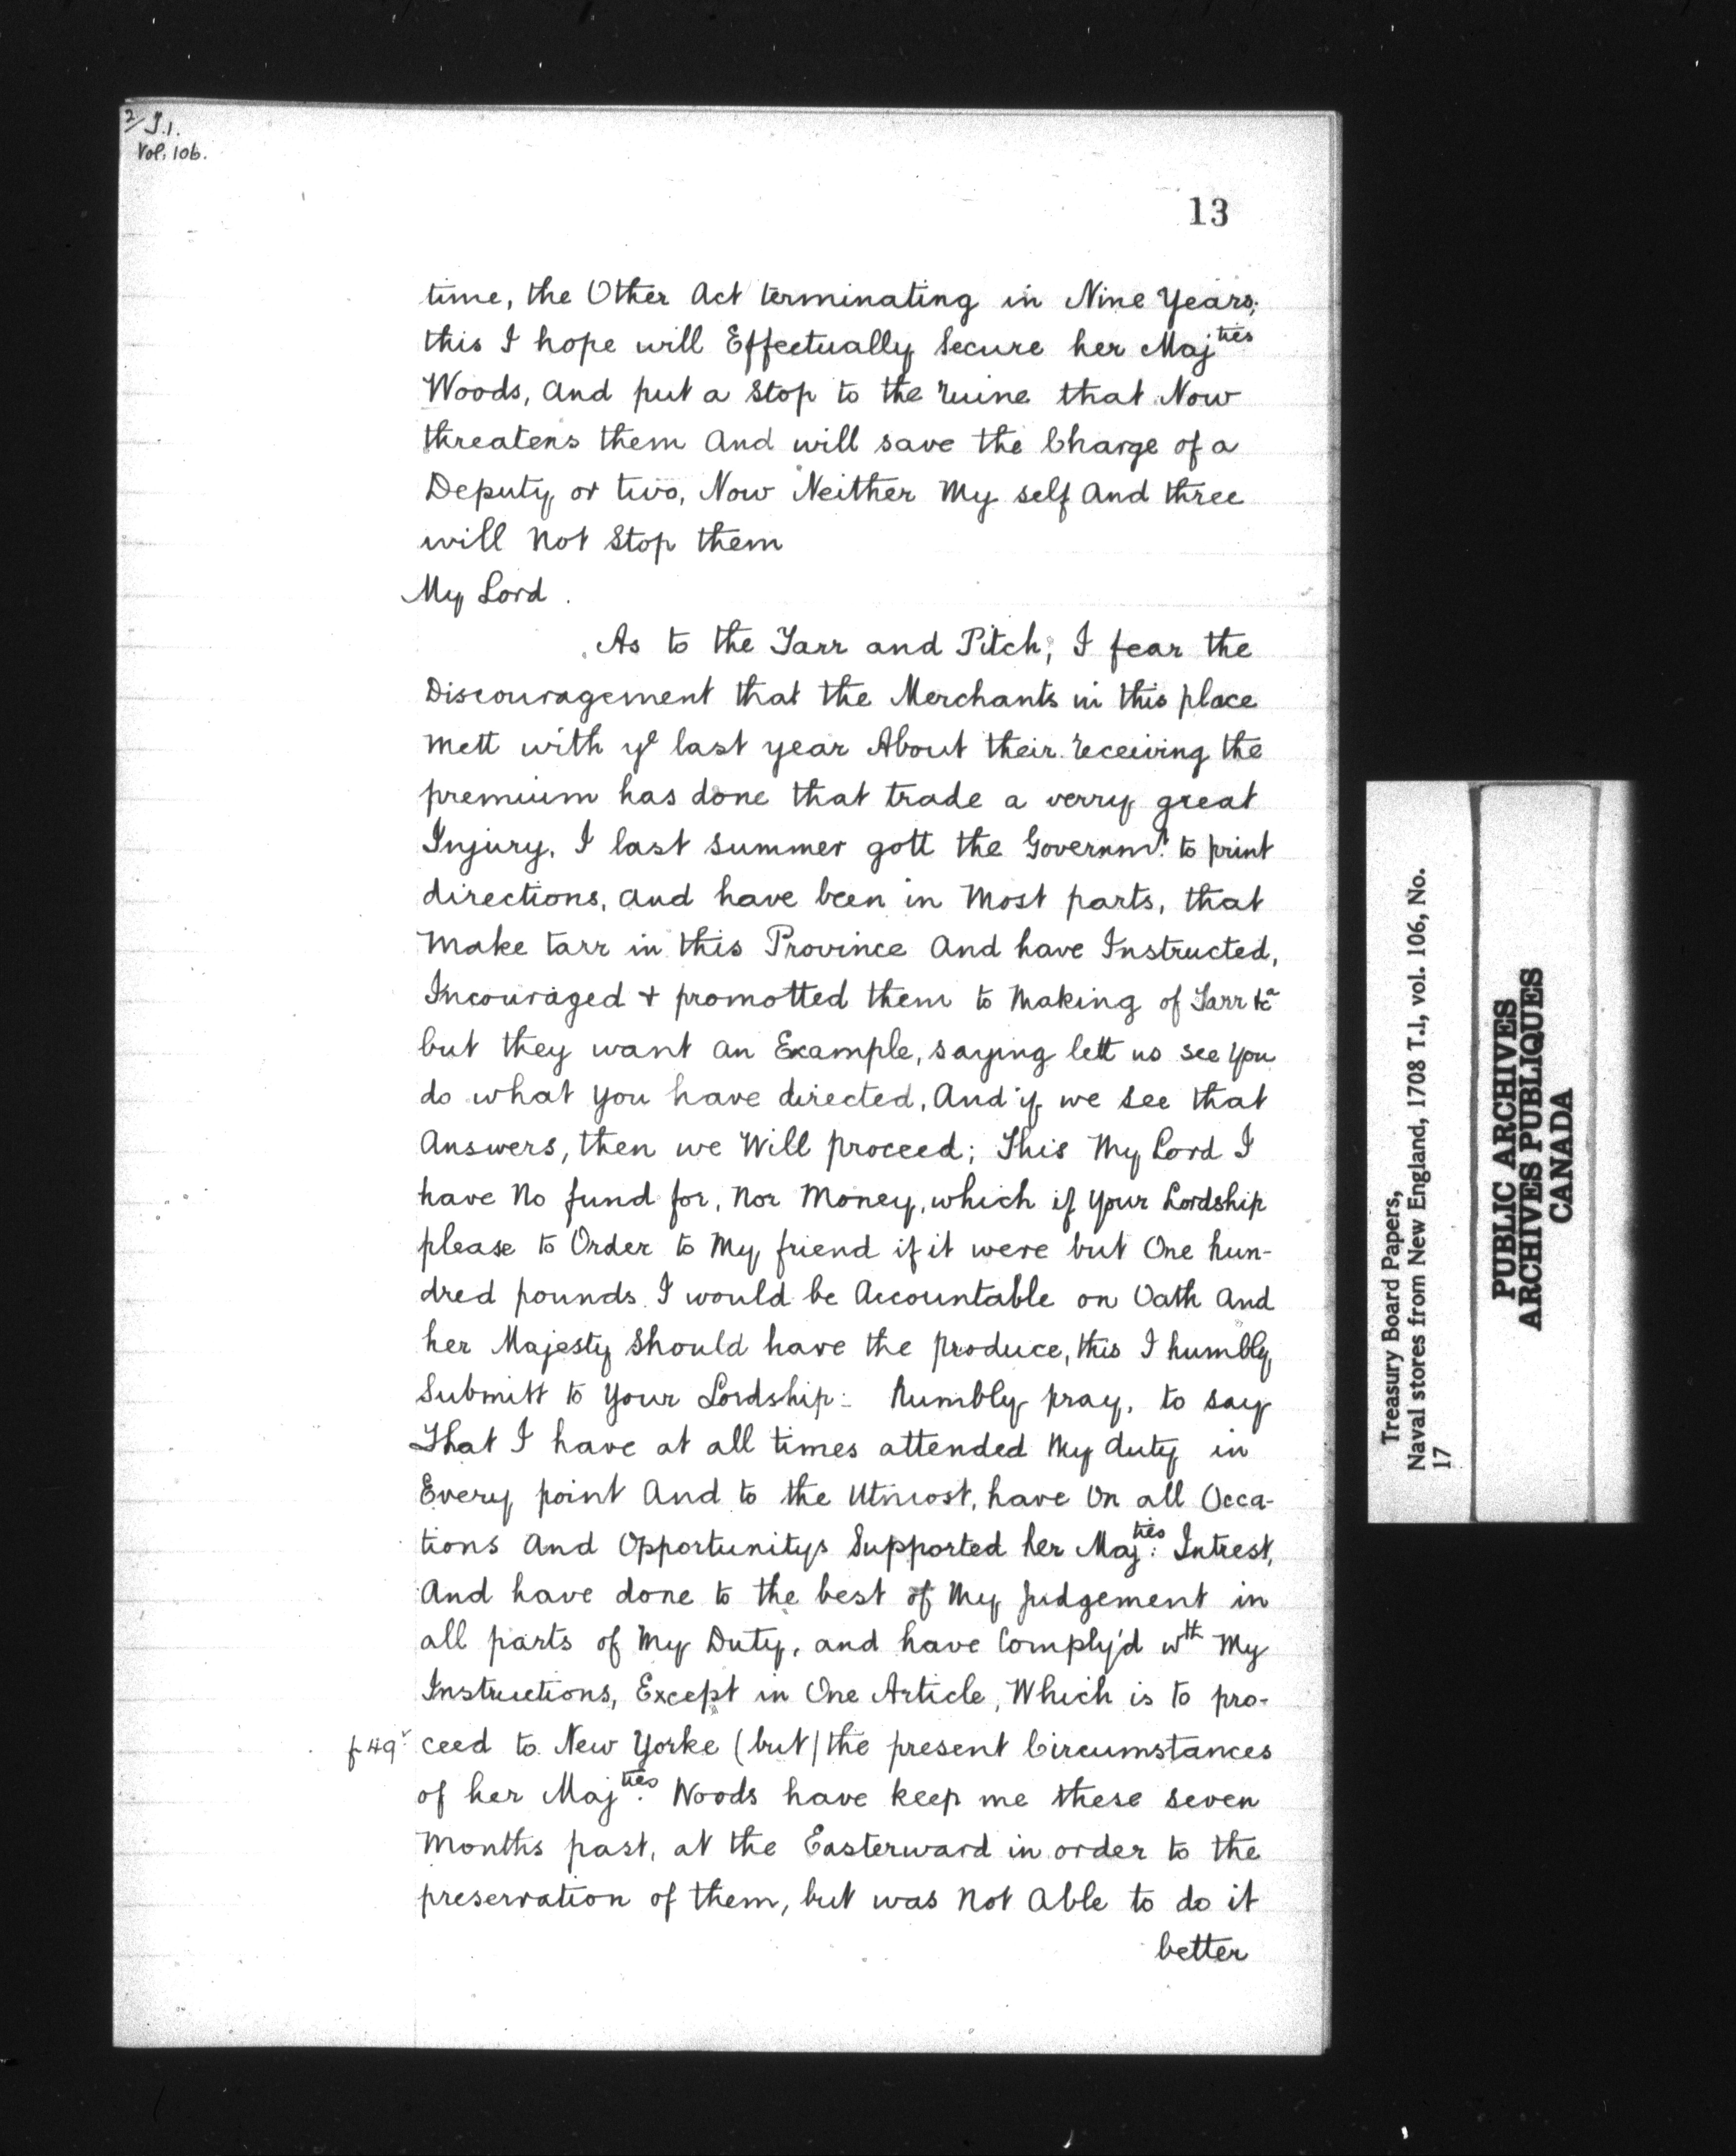 2/ T.1.
Vol. 106.
13
time, the Other Act terminating in Nine Years;
this I hope will Effectually Secure her Maj^ties
Woods, And put a Stop to the ruine that Now
threatens them And will save the Charge of a
Deputy or two, Now Neither My self And three
will Not Stop them
My Lord.
As to the Tarr and Pitch, I fear the
Discouragement that the Merchants in this place
mett with y^e last year About their receiving the
premium has done that trade a verry great
Injury. I last Summer gott the Governm^t. to print
directions, And have been in Most parts, that
Make tarr in this Province And have Instructed,
Incouraged & promotted them to Making of Tarr &c^a
but they want An Example, saying lett us see You
do what You have directed, And if we see that
Answers, then we Will proceed; This My Lord I
have No fund for, Nor Money, which if Your Lordship
please to Order to My friend if it were but One hun-
dred pounds I would be Accountable on Oath And
her Majesty Should have the produce, this I humbly
Submitt to Your Lordship: Humbly pray, to say
That I have at all times attended My duty in
Every point And to the Utmost, have On all Occa-
tions And Opportunitys Supported her Maj^ties: Intrest,
And have done to the best of My Judgement in
all parts of My Duty, and have Comply'd w^th My
Instructions, Except in One Article, Which is to pro-
f 49^v ceed to New Yorke (but) the present Circumstances
of her Maj^ties. Woods have keep me these seven
Months past, at the Easterward in order to the
preservation of them, but was Not Able to do it
better
Treasury Board Papers,
Naval stores from New England, 1708 T.1, vol. 106, No.
17
PUBLIC ARCHIVES
ARCHIVES PUBLIQUES
CANADA